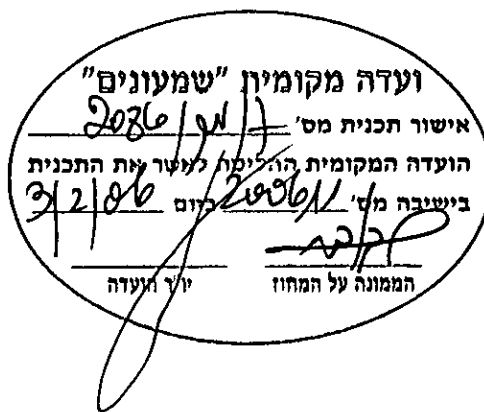 ועדה מקומית "שמעונים"
אישור תכנית מס' 7/מק/2086
הועדה המקומית החליטה לאשר את התכנית
בישיבה מס' 2006/1 ביום 3/2/06
הממונה על המחוז יו"ר הועדה